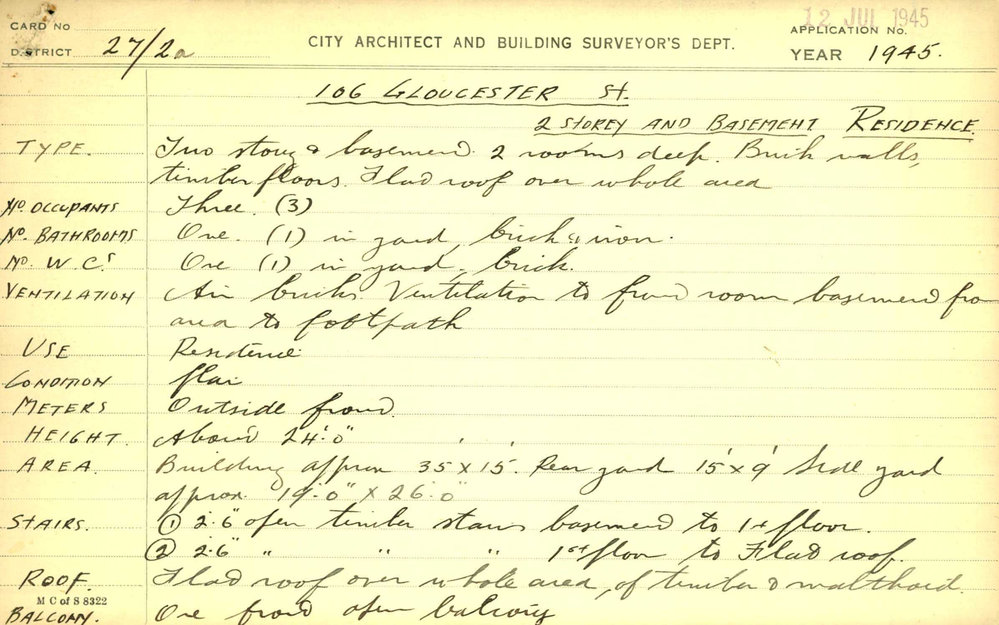 CARD No
DISTRICT 27/2a
CITY ARCHITECT AND BUILDING SURVEYOR'S DEPT.
12 JUL 1945
APPLICATION No.
YEAR 1945.
106 GLOUCESTER St.
2 STOREY AND BASEMENT RESIDENCE.
TYPE. Two storey & basement. 2 rooms deep. Brick walls,
timber floors. Flat roof over whole area
No. OCCUPANTS Three. (3)
No. BATHROOMS One. (1) in yard, brick & iron.
No. W.Cs One (1) in yard, brick.
VENTILATION Air bricks. Ventilation to front room basement from
area to footpath
USE Residence
CONDITION Fair
METERS Outside front.
HEIGHT. About 24'.0"
AREA. Building approx 35' x 15'. Rear yard 15' x 9' Side yard
approx. 19'.0" x 26'.0"
STAIRS. ① 2'.6" open timber stairs basement to 1st floor.
② 2'.6" " " " 1st floor to Flat roof.
ROOF. Flat roof over whole area, of timber & malthoid.
M C of S 8322
BALCONY. One front open balcony